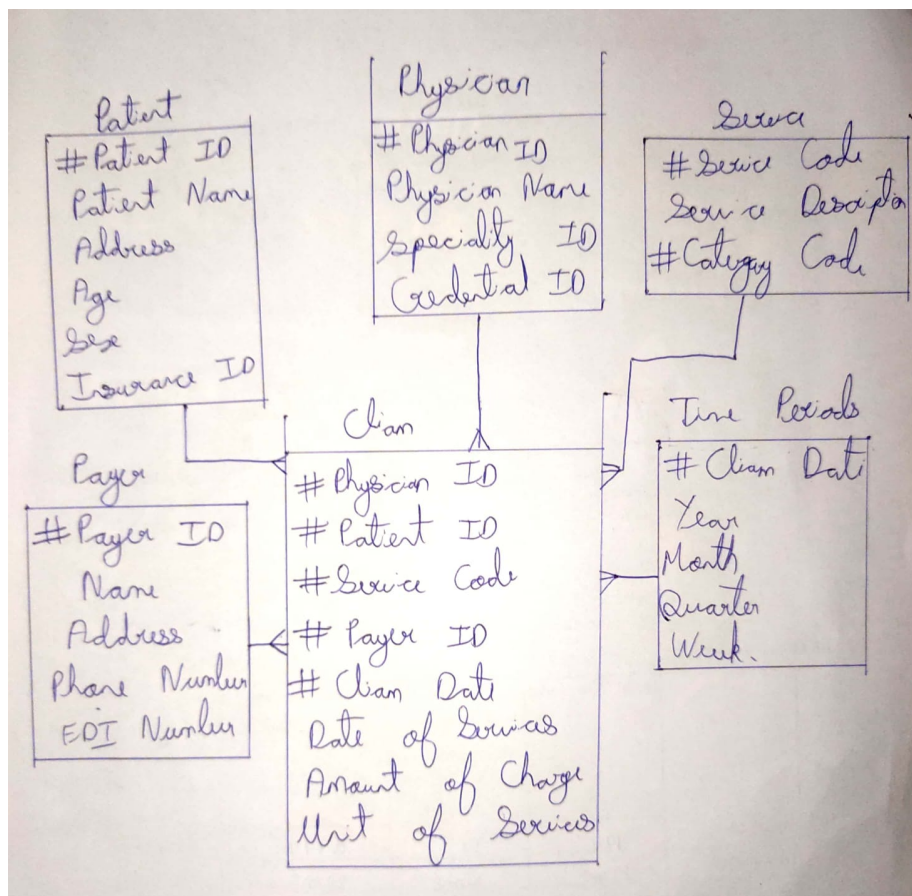 Patient
#Patient ID
Patient Name
Address
Age
Sex
Insurance ID
Physician
#Physician ID
Physician Name
Speciality ID
Credential ID
Service
#Service Code
Service Description
#Category Code
Payer
#Payer ID
Name
Address
Phone Number
EDI Number
Cliam
#Physician ID
#Patient ID
#Service Code
#Payer ID
#Cliam Date
Date of Services
Amount of Charge
Unit of Services
Time Periods
#Cliam Date
Year
Month
Quarter
Week.